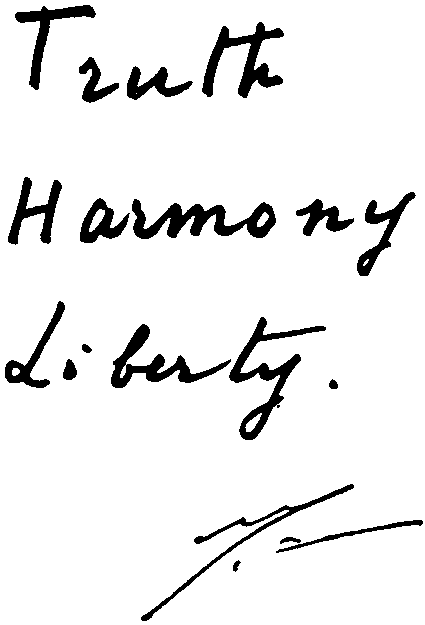 Truth
Harmony
Liberty.